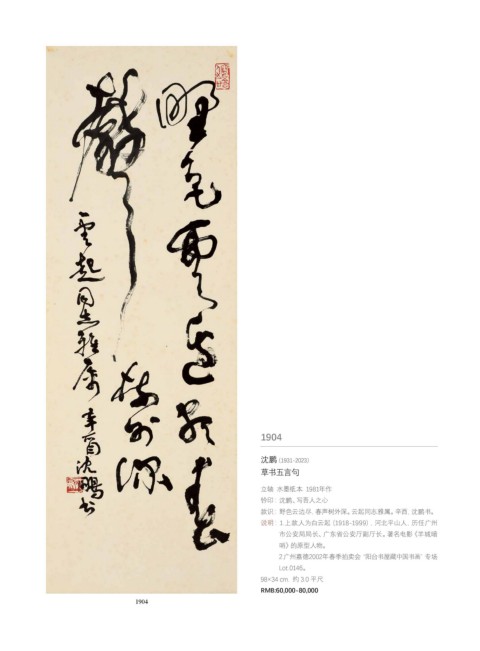 野色雲邊尽春
聲
樹外深
雲起同志雅属
辛酉沈鹏书
1904
1904
沈鹏 (1931-2023)
草书五言句
立轴 水墨纸本 1981年作
钤印：沈鹏、写吾人之心
款识：野色云边尽，春声树外深。云起同志雅属。辛酉，沈鹏书。
说明：1.上款人为白云起（1918-1999），河北平山人，历任广州
市公安局局长、广东省公安厅副厅长。著名电影《羊城暗
哨》的原型人物。
2.广州嘉德2002年春季拍卖会“阳台书屋藏中国书画”专场
Lot.0146。
98×34 cm. 约 3.0 平尺
RMB:60,000-80,000